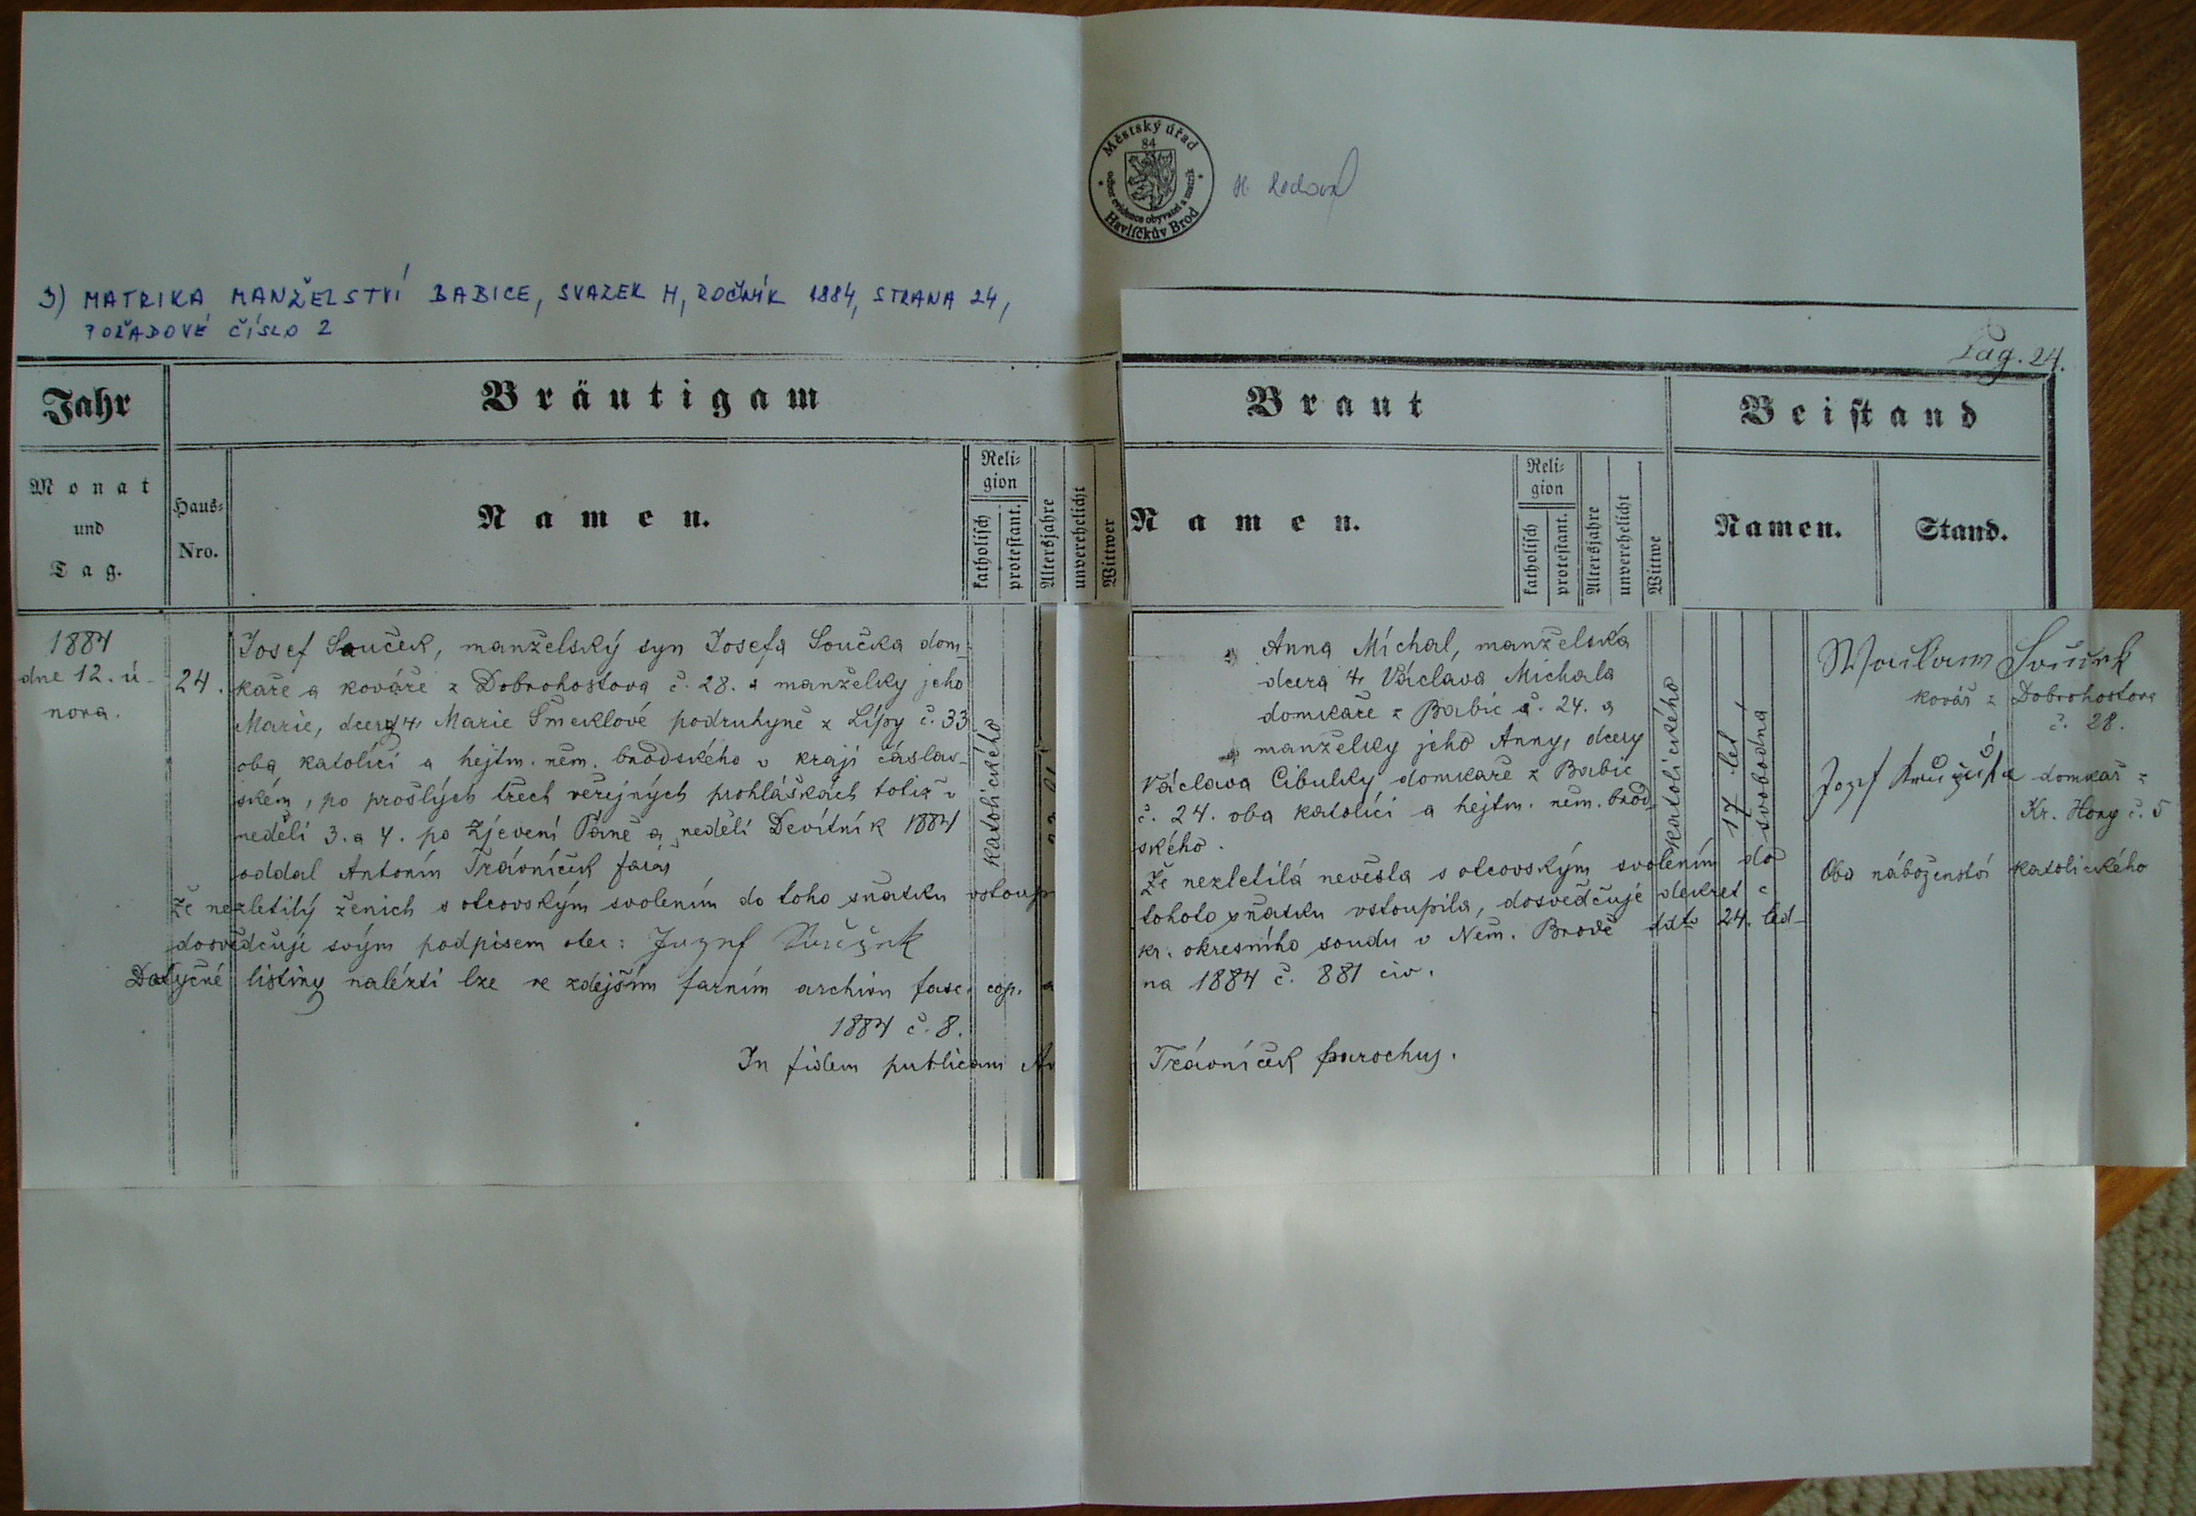 Městský úřad
84
odbor evidence obyvatel a matrik
Havlíčkův Brod
3) MATRIKA MANŽELSTVÍ BABICE, SVAZEK H, ROČNÍK 1884, STRANA 24,
POŘADOVÉ ČÍSLO 2
Pag. 24.
Jahr
Monat
und
Tag.
Bräutigam
Haus-
Nro.
Namen.
Reli-
gion
katholisch
protestant.
Altersjahre
unverehelicht
Wittwer
Braut
Namen.
Reli-
gion
katholisch
protestant.
Altersjahre
unverehelicht
Wittwe
Beistand
Namen.
Stand.
1884
dne 12. ú-
nora.
24.
Josef Souček, manželský syn Josefa Součka dom-
kaře a kováře z Dobrohostova č. 28. a manželky jeho
Marie, dcery † Marie Šmeklové podruhyně z Lípy č. 33
oba katolíci a hejtm. něm. brodského v kraji čáslav-
ském, po prošlých třech veřejných prohláškách totiž v
neděli 3. a 4. po Zjevení Páně a neděli Devítník 1884
oddal Antonín Trávníček farář
katolického
Že nezletilý ženich s otcovským svolením do toho sňatku vstoupil
dosvědčuje svým podpisem otec: Jozef Souček
Dotyčné listiny nalézti lze ve zdejším farním archivu fasc. cop. a
1884 č. 8.
In fidem publicam
Anna Míchal, manželská
dcera † Václava Míchala
domkaře z Babic č. 24. a
manželky jeho Anny, dcery
Václava Cibulky domkaře z Babic
č. 24. oba katolíci a hejtm. něm. brod-
ského.
katolického
17 let
svobodná
Že nezletilá nevěsta s otcovským svolením do
tohoto sňatku vstoupila, dosvědčuje dekret c.
kr. okresního soudu v Něm. Brodě ddto 24. led-
na 1884 č. 881 civ.
Trávníček parochus.
Waclaw Souček
kovář z Dobrohostova
č. 28.
Jozef
domkař z
Kr. Hory č. 5
Oba náboženství katolického